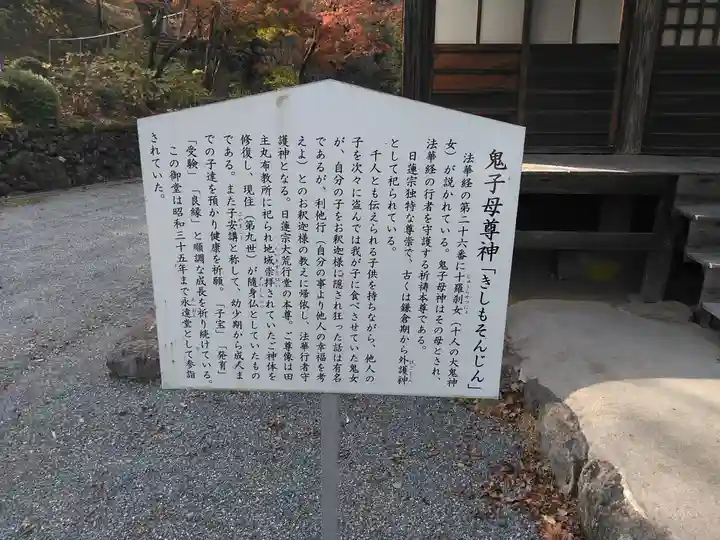 鬼子母尊神「きしもそんじん」
法華経の第二十六番に十羅刹女(十人の大鬼神
じゅうらせつにょ
女)が説かれている。鬼子母神はその母とされ、
法華経の行者を守護する祈祷本尊である。
日蓮宗独特な尊崇で、古くは鎌倉期から外護神
げごしん
として祀られている。
千人とも伝えられる子供を持ちながら、他人の
子を次々に盗んでは我が子に食べさせていた鬼女
が、自分の子をお釈迦様に隠され狂った話は有名
であるが、利他行(自分の事より他人の幸福を考
えよ)とのお釈迦様の教えに帰依し、法華行者守
護神となる。日蓮宗大荒行堂の本尊。ご尊像は田
主丸布教所に祀られ地域崇拝されていたご神体を
修復し、現住(第九世)が随身仏としていたもの
である。また子安講と称して、幼少期から成人ま
での子達を預かり健康を祈願。「子宝」「発育」
「受験」「良縁」と順調な成長を祈り続けている。
この御堂は昭和三十五年まで永遠堂として参詣
されていた。